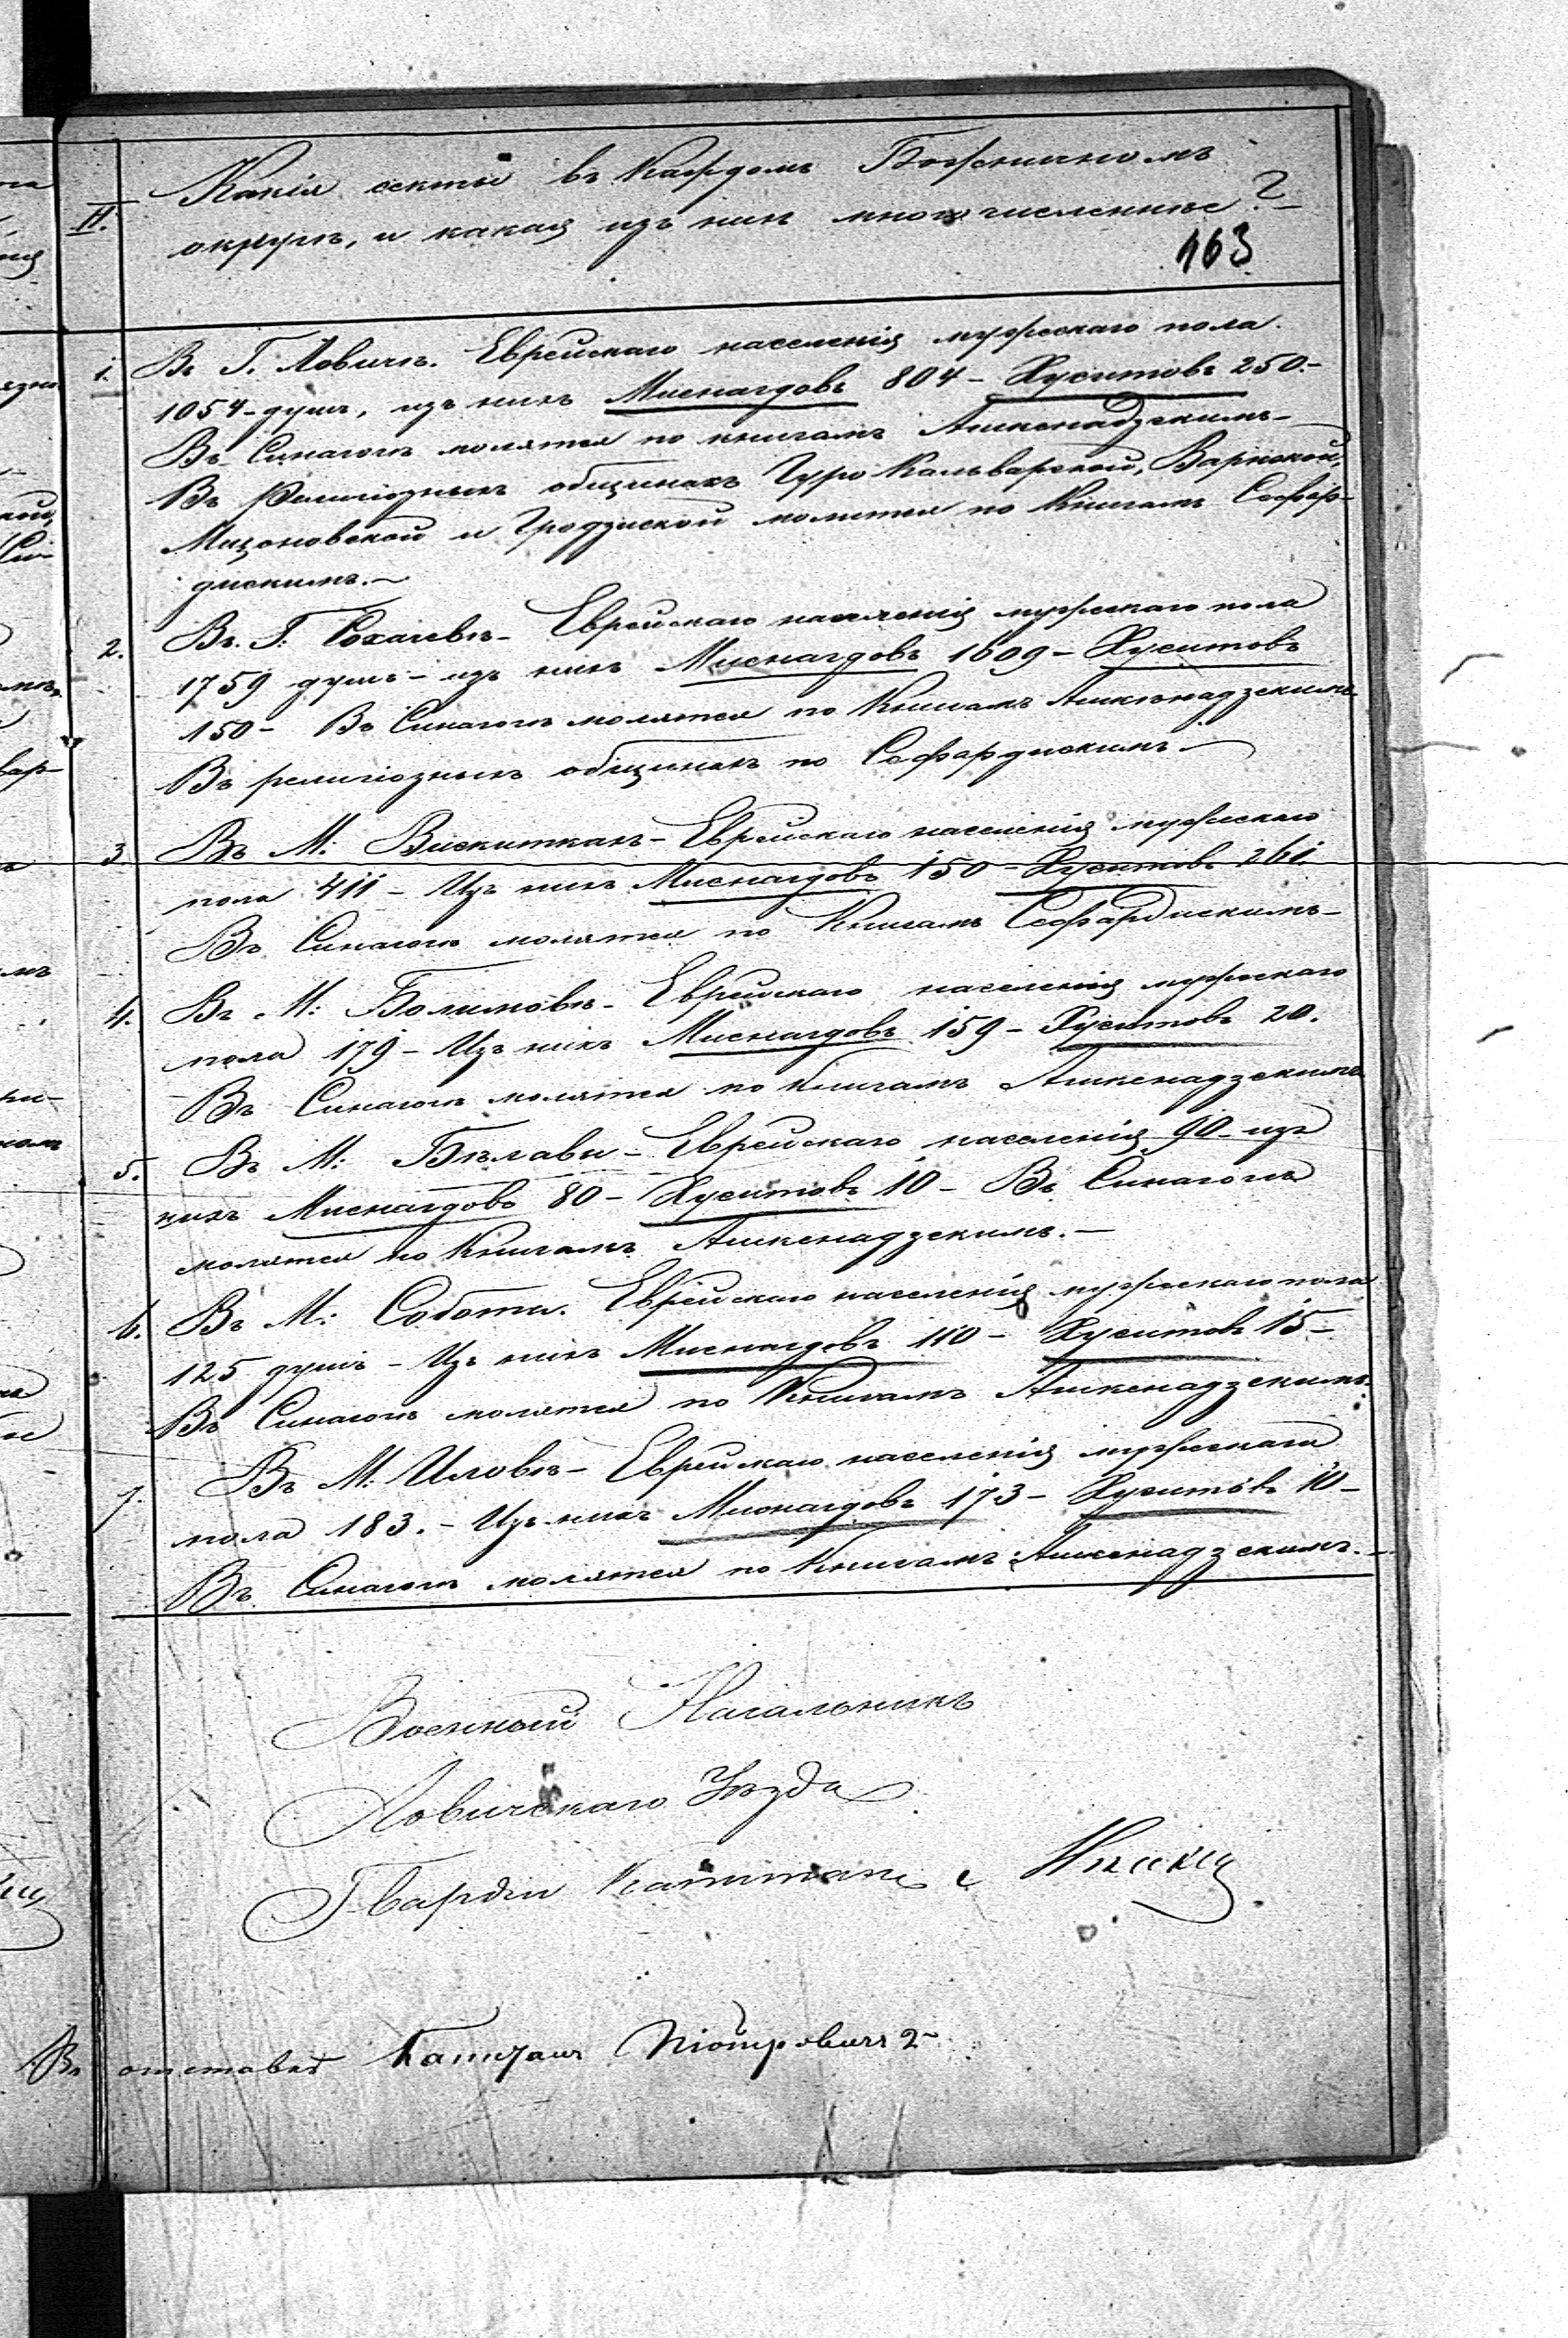 II. Какія секты въ Каждомъ Божничномъ
округѣ, и какая изъ нихъ многочисленнѣе?
163
1. Въ Г. Ловичѣ. Еврейскаго населенія мужескаго пола.
1054 - душъ, изъ нихъ Миснагдовъ 804 - Хуситовъ 250. -
Въ Синагогѣ молятся по книгамъ Ашкенадзскимъ -
Въ Религіозныхъ общинахъ Гуро Кальварской, Варкской,
Мщоновской и Гродзиской молятся по Книгамъ Сефар-
дискимъ. -
2. Въ Г: Сохачевѣ - Еврейскаго населенія мужескаго пола
1759 душъ - изъ нихъ Миснагдовъ 1609 - Хуситовъ
150 - Въ Синагогѣ молятся по Книгамъ Ашкенадзскимъ
Въ религіозныхъ общинахъ по Сефардискимъ -
3 Въ М: Вискиткахъ - Еврейскаго населенія мужескаго
пола 411 - Изъ нихъ Миснагдовъ 150 - Хуситовъ 261.
Въ Синагогѣ молятся по Книгамъ Сефардискимъ -
4. Въ М: Болимовѣ - Еврейскаго населенія мужескаго
пола 179 - Изъ нихъ Миснагдовъ 159 - Хуситовъ 20.
Въ Синагогѣ молятся по Книгамъ Ашкенадзскимъ
5. Въ М: Бѣлавы - Еврейскаго населенія 90 - изъ
нихъ Миснагдовъ 80 - Хуситовъ 10 - Въ Синагогѣ
молятся по Книгамъ Ашкенадзскимъ. -
6. Въ М: Собота. Еврейскаго населенія мужескаго пола
125 душъ - Изъ нихъ Миснагдовъ 110 - Хуситовъ 15 -
Въ Синагогѣ молятся по Книгамъ Ашкенадзскимъ
7. Въ М: Иловѣ - Еврейскаго населенія мужескаго
пола 183. - Изъ нихъ Миснагдовъ 173 - Хуситовъ 10 -
Въ Синагогѣ молятся по Книгамъ Ашкенадзскимъ. -
Военный Начальникъ
Ловичскаго Уѣзда
Гвардіи Капитанъ
Въ отставкѣ Капитанъ Піотровичъ 2-